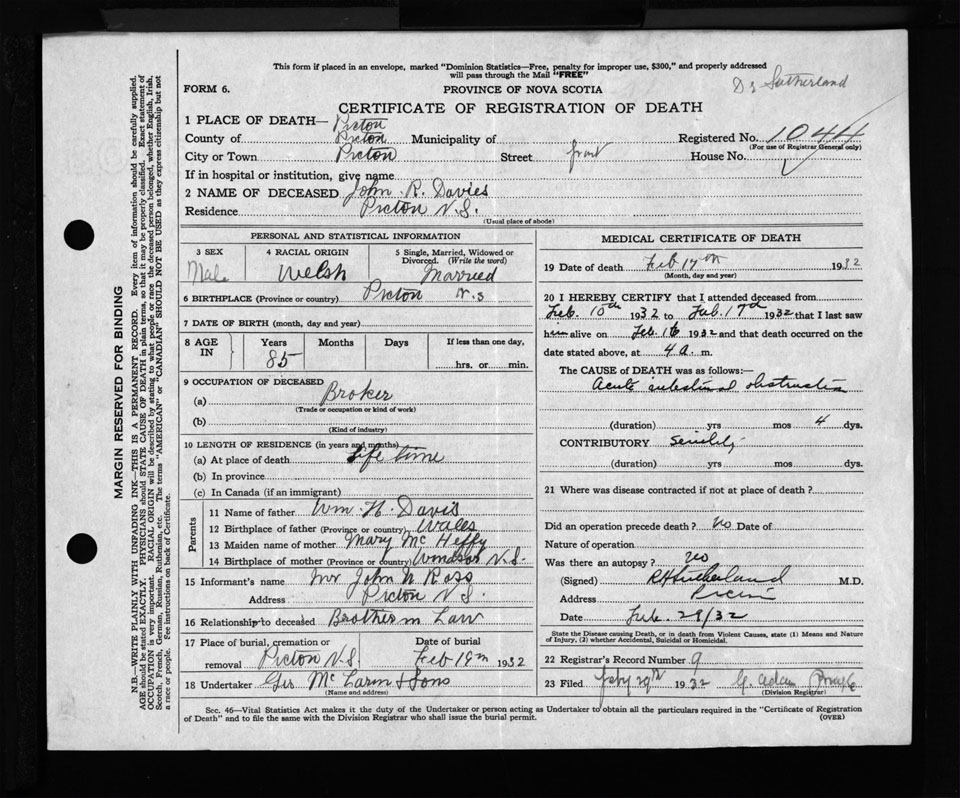 This form if placed in an envelope, marked "Dominion Statistics—Free, penalty for improper use, $300," and properly addressed
will pass through the Mail "FREE"
Dr Sutherland
FORM 6.
PROVINCE OF NOVA SCOTIA
CERTIFICATE OF REGISTRATION OF DEATH
1 PLACE OF DEATH— Picton
County of Picton Municipality of Registered No. 1044
(For use of Registrar General only)
City or Town Picton Street front House No.
If in hospital or institution, give name
2 NAME OF DECEASED John R. Davies
Residence Picton N.S.
(Usual place of abode)
PERSONAL AND STATISTICAL INFORMATION
3 SEX 4 RACIAL ORIGIN 5 Single, Married, Widowed or
Divorced. (Write the word)
Male Welsh Married
6 BIRTHPLACE (Province or country) Picton N.S
7 DATE OF BIRTH (month, day and year)
8 AGE IN Years Months Days If less than one day,
85 hrs. or min.
9 OCCUPATION OF DECEASED
(a) Broker
(Trade or occupation or kind of work)
(b)
(Kind of industry)
10 LENGTH OF RESIDENCE (in years and months)
(a) At place of death Life time
(b) In province
(c) In Canada (if an immigrant)
Parents
11 Name of father Wm. H. Davis
12 Birthplace of father (Province or country) Wales
13 Maiden name of mother Mary Mc Heffy
14 Birthplace of mother (Province or country) Windsor N.S.
15 Informant's name Mr John W Ross
Address Picton N.S.
16 Relationship to deceased Brother in Law
17 Place of burial, cremation or Date of burial
removal Picton N.S. Feb 19th 1932
18 Undertaker Geo Mc Larin & Sons
(Name and address)
MEDICAL CERTIFICATE OF DEATH
19 Date of death Feb 17th 1932
(Month, day and year)
20 I HEREBY CERTIFY that I attended deceased from
Feb. 10th 1932 to Feb. 17th 1932 that I last saw
him alive on Feb. 16 1932 and that death occurred on the
date stated above, at 4 a. m.
The CAUSE of DEATH was as follows:—
Acute intestinal obstruction
(duration) yrs mos 4 dys.
CONTRIBUTORY Senility
(duration) yrs mos dys.
21 Where was disease contracted if not at place of death?
Did an operation precede death? No Date of
Nature of operation
Was there an autopsy? No
(Signed) R H Sutherland M.D.
Address Pictou
Date Feb. 29/32
State the Disease causing Death, or in death from Violent Causes, state (1) Means and Nature
of Injury, (2) whether Accidental, Suicidal or Homicidal.
22 Registrar's Record Number 9
23 Filed Feby 29th 1932 G. Adam
(Division Registrar)
Sec. 46—Vital Statistics Act makes it the duty of the Undertaker or person acting as Undertaker to obtain all the particulars required in the "Certificate of Registration
of Death" and to file the same with the Division Registrar who shall issue the burial permit.
(OVER)
MARGIN RESERVED FOR BINDING
N.B.—WRITE PLAINLY WITH UNFADING INK—THIS IS A PERMANENT RECORD. Every item of information should be carefully supplied.
AGE should be stated EXACTLY. PHYSICIANS should STATE CAUSE OF DEATH in plain terms, so that it may be properly classified. Exact statement of
OCCUPATION is very important. RACIAL ORIGIN will be described by stating to what people or race the deceased person belonged, whether English, Irish,
Scotch, French, German, Russian, Ruthenian, etc. The terms "AMERICAN" or "CANADIAN" SHOULD NOT BE USED as they express citizenship but not
a race or people. See instructions on back of Certificate.